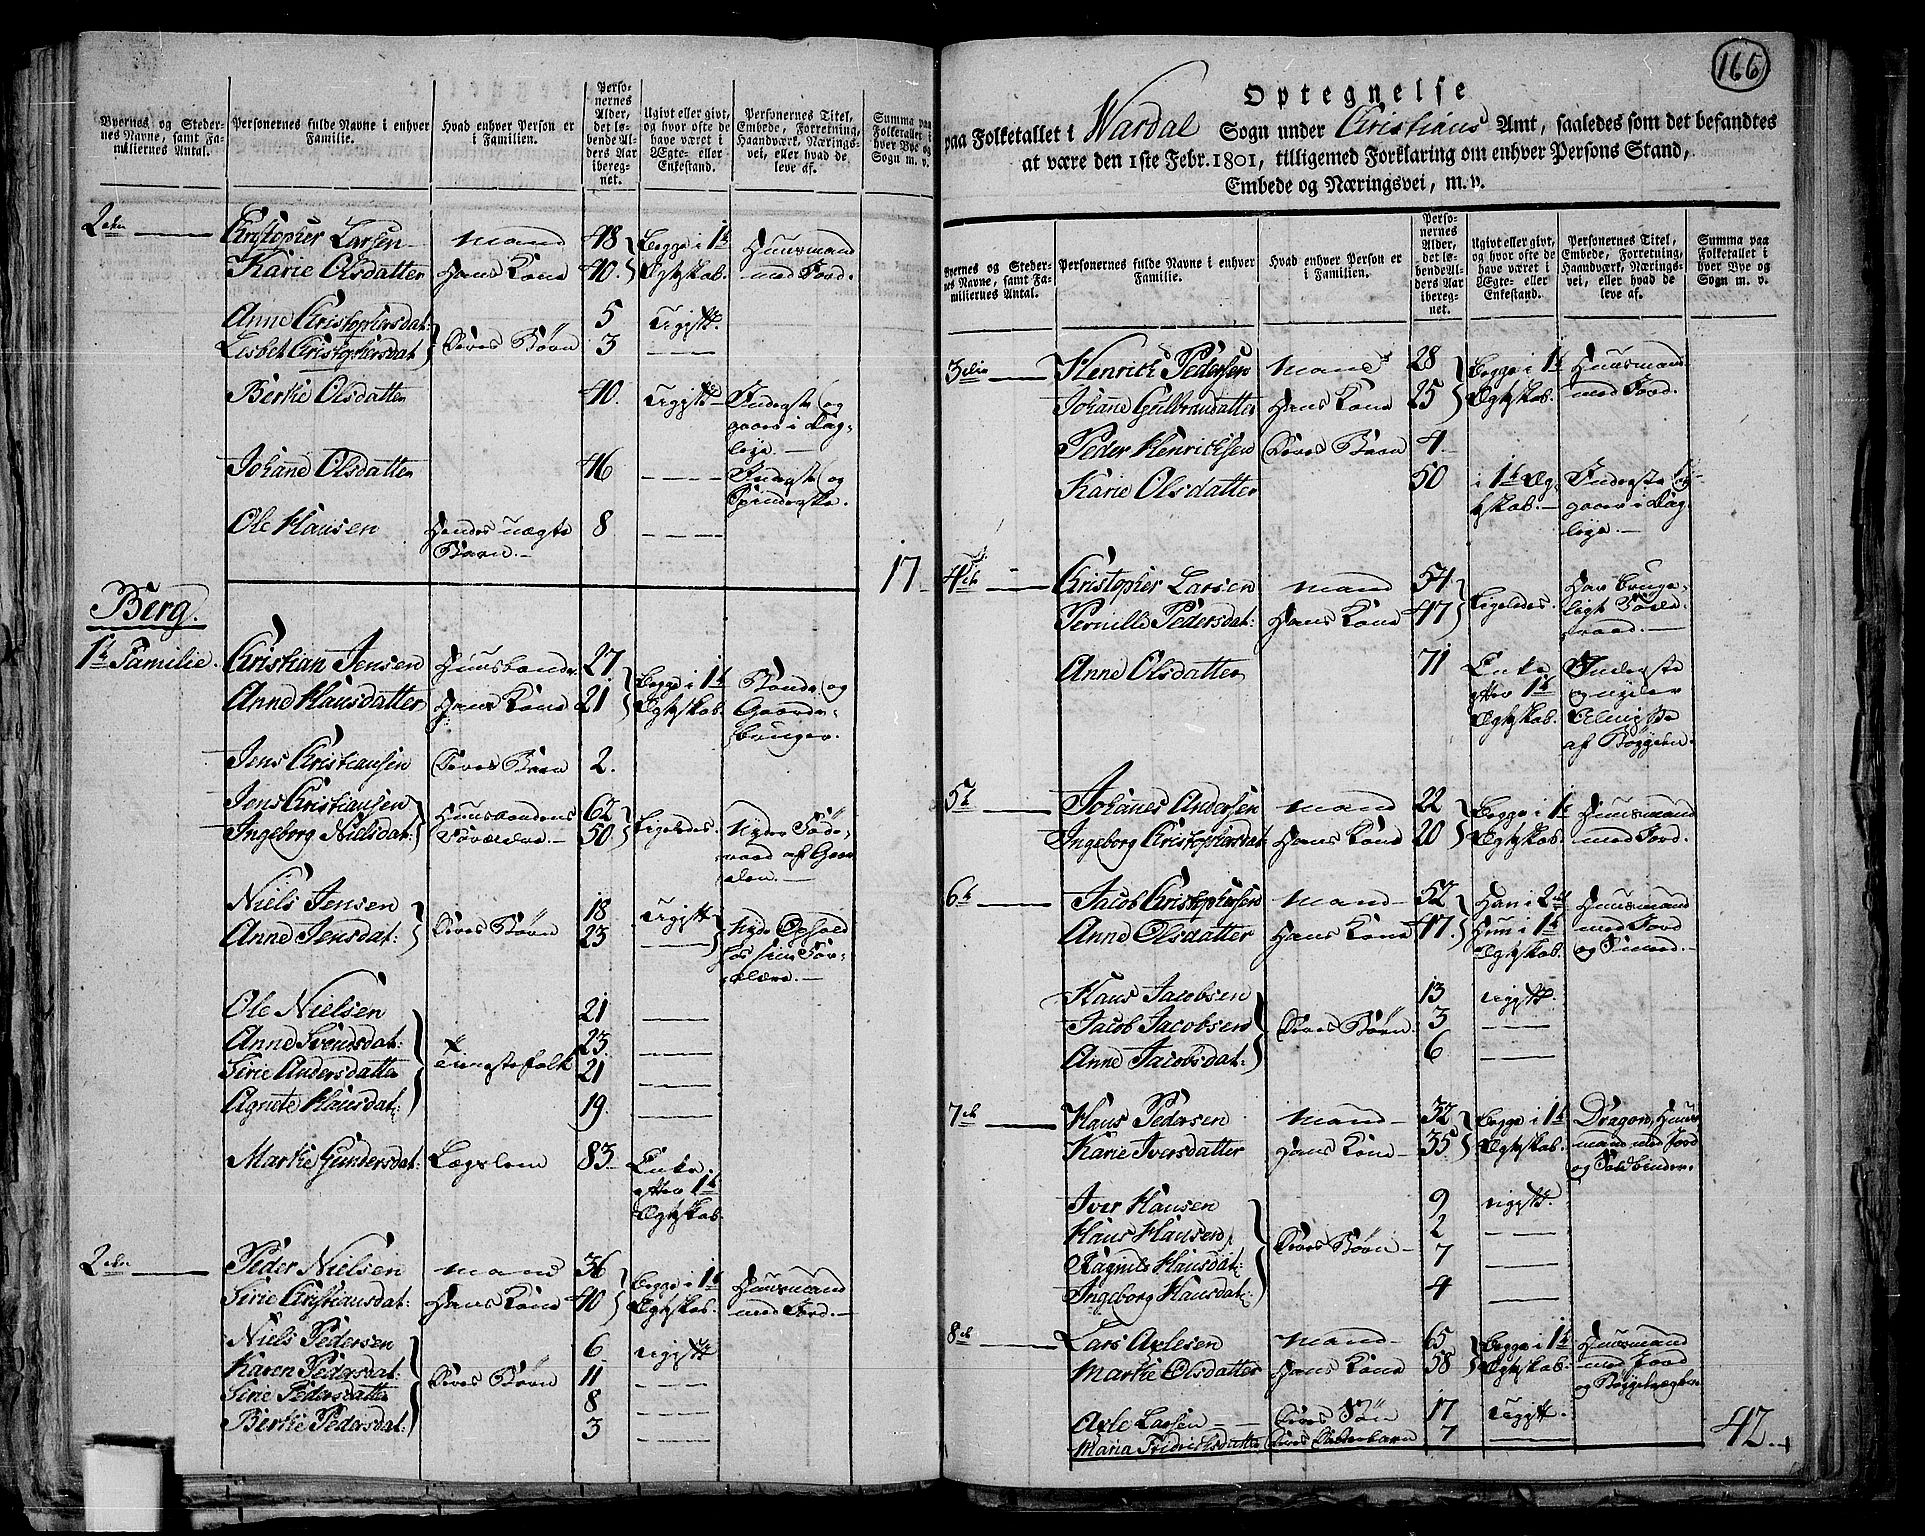 Byernes og Steder-
nes Navne, samt Fa-
miliernes Antal.
Personernes fulde Navne i enhver
Familie.
Hvad enhver Person er
i Familien.
Perso-
nernes
Alder,
det lø-
bende Al-
ders Aar
ibereg-
net.
Ugivt eller givt,
og hvor ofte de
have været i
Ægte- eller
Enkestand.
Personernes Titel,
Embede, Forretning,
Haandværk, Nærings-
vei, eller hvad de
leve af.
Summa paa
Folketallet i
hver Bye og
Sogn m. v.
2den Christopher Larsen Mand 48 Begge i 1te Huusmand
Karie Olsdatter Hans Kone 40 Ægteskab. med Jord.
Anne Christophersdat: 5 Ugivt
Lisbet Christophersdat Deres Børn 3
Berte Olsdatter 40. Ugivt Inderste og
gaaer i Dag-
leje.
Johanne Olsdatter 46 Inderste og
Spinderske.
Ole Hansen Hendes uægte 8
Barn.
17
Berg.
1te Familie. Christian Jensen Huusbonde 27 Begge i 1te Bonde og
Anne Hansdatter Hans Kone 21 Ægteskab. Gaard-
bruger.
Jens Christiansen Deres Barn 2.
Jens Christiansen Huusbondens 62 Ligeledes. Nyder Føde-
Ingeborg Nielsdat: Forældre 50 raad af Gaar-
den.
Niels Jensen Deres Børn 18 Ugivt Nyder Ophold
Anne Jensdat: 23 hos sine For-
ældre.
Ole Nielsen 21
Anne Svendsdat: 23
Sirie Andersdatter Tienestefolk 21
Agnete Hansdat: 19.
Marte Gundersdat: Lægslem 83 Enke
efter 1te
Ægteskab.
2den Peder Nielsen Mand 36 Begge i 1te Huusmand
Sirie Christiansdat: Hans Kone 40 Ægteskab. med Jord.
Niels Pedersen 6 Ugivt
Karen Pedersdat: Deres Børn 11
Sirie Pedersdatter 8
Berte Pedersdat: 3
166
Optegnelse
paa Folketallet i Wardal Sogn under Christians Amt, saaledes som det befandtes
at være den 1ste Febr. 1801, tilligemed Forklaring om enhver Persons Stand,
Embede og Næringsvei, m. v.
Byernes og Steder-
nes Navne, samt Fa-
miliernes Antal.
Personernes fulde Navne i enhver
Familie.
Hvad enhver Person er
i Familien.
Perso-
nernes
Alder,
det lø-
bende Al-
ders Aar
ibereg-
net.
Ugivt eller givt,
og hvor ofte de
have været i
Ægte- eller
Enkestand.
Personernes Titel,
Embede, Forretning,
Haandværk, Nærings-
vei, eller hvad de
leve af.
Summa paa
Folketallet i
hver Bye og
Sogn m. v.
3die Henrich Pedersen Mand 28 Begge i 1te Huusmand
Johanne Gulbrandsdatter Hans Kone 25 Ægteskab. med Jord.
Peder Henrichsen Deres Barn 4.
Karie Olsdatter 50 i 1te Æg- Inderste og
teskab. gaaer i Dag-
leje.
4de Christopher Larsen Mand 54 Ligeledes. Har Bruge-
Pernille Pedersdat: Hans Kone 47 ligt Føde-
raad.
Anne Olsdatter 71 Enke Inderste
efter 1te og nyder
Ægteskab. Almisse
af Bøygden.
5te Johannes Andersen Mand 22 Begge i 1te Huusmand
Ingeborg Christophersdat. Hans Kone 20 Ægteskab. med Jord.
6te Jacob Christophersen Mand 52 Han i 2det Huusmand
Anne Olsdatter Hans Kone 47. Hun i 1te med Jord
Ægteskab. og Smed.
Hans Jacobsen 13 Ugivt.
Jacob Jacobsen Deres Børn 3
Anne Jacobsdat: 6
7de Hans Pedersen Mand 32 Begge i 1te Dragon, Huus-
Karie Iversdatter Hans Kone 35 Ægteskab. mand med Jord
og Bødbinder.
Iver Hansen 9 Ugivt.
Hans Hansen Deres Børn 2
Ragnild Hansdat: 7
Ingeborg Hansdat: 4
8de Lars Axlesen Mand 65 Begge i 1te Huusmand
Marte Olsdatter Hans Kone 58 Ægteskab. med Jord
og Bøygdevægter.
Axle Larsen Deres Søn 17 Ugivt.
Maria Fredrichsdatter Deres Datterbarn 7
42.